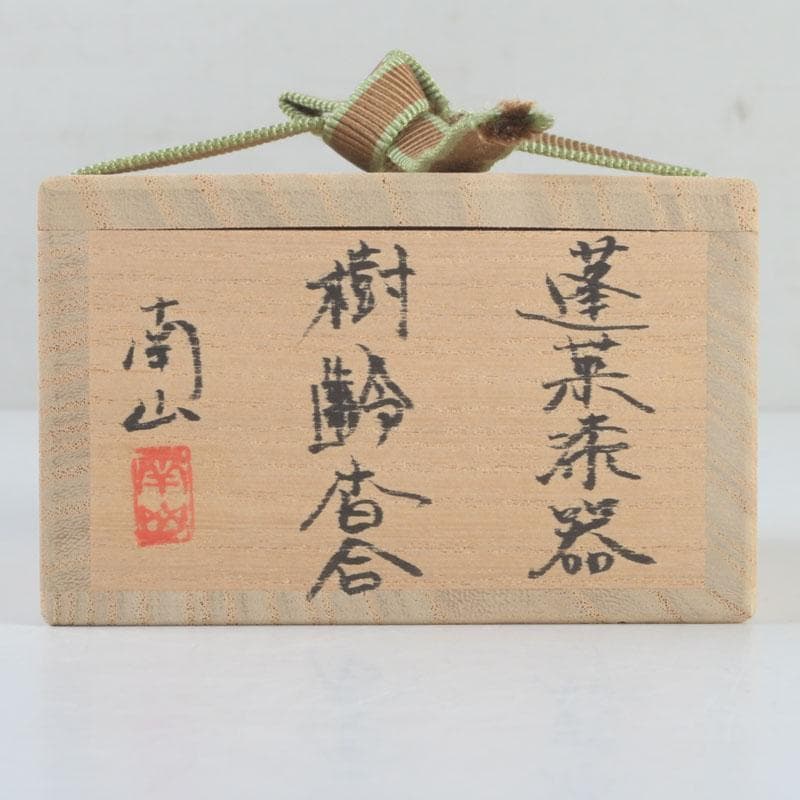 蓬莱漆器
樹齢香合
南山
南山